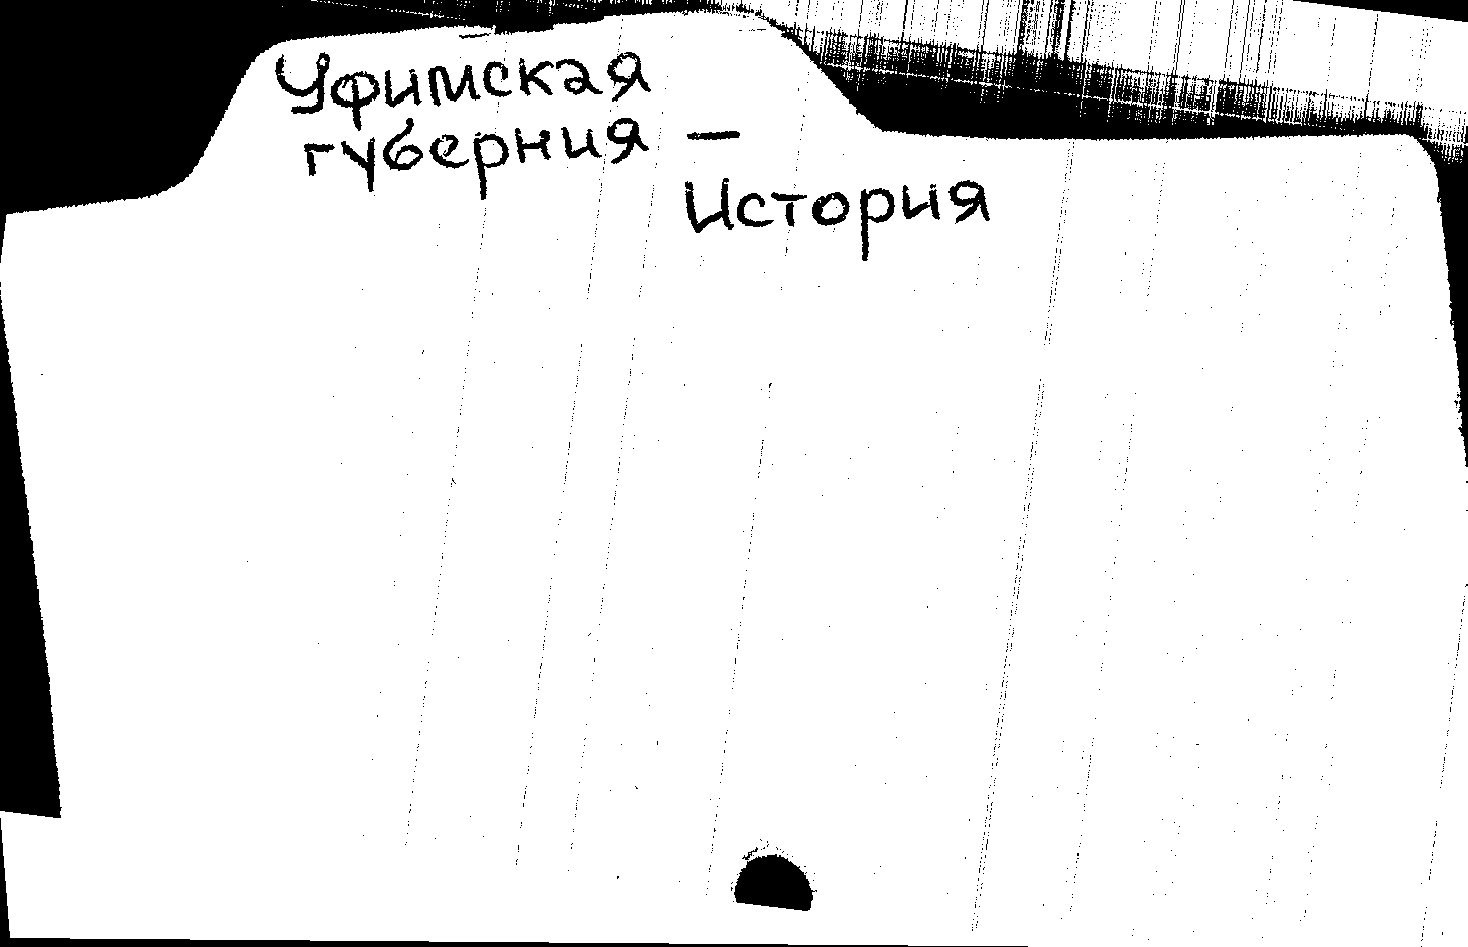 Уфимская
губерния —
История